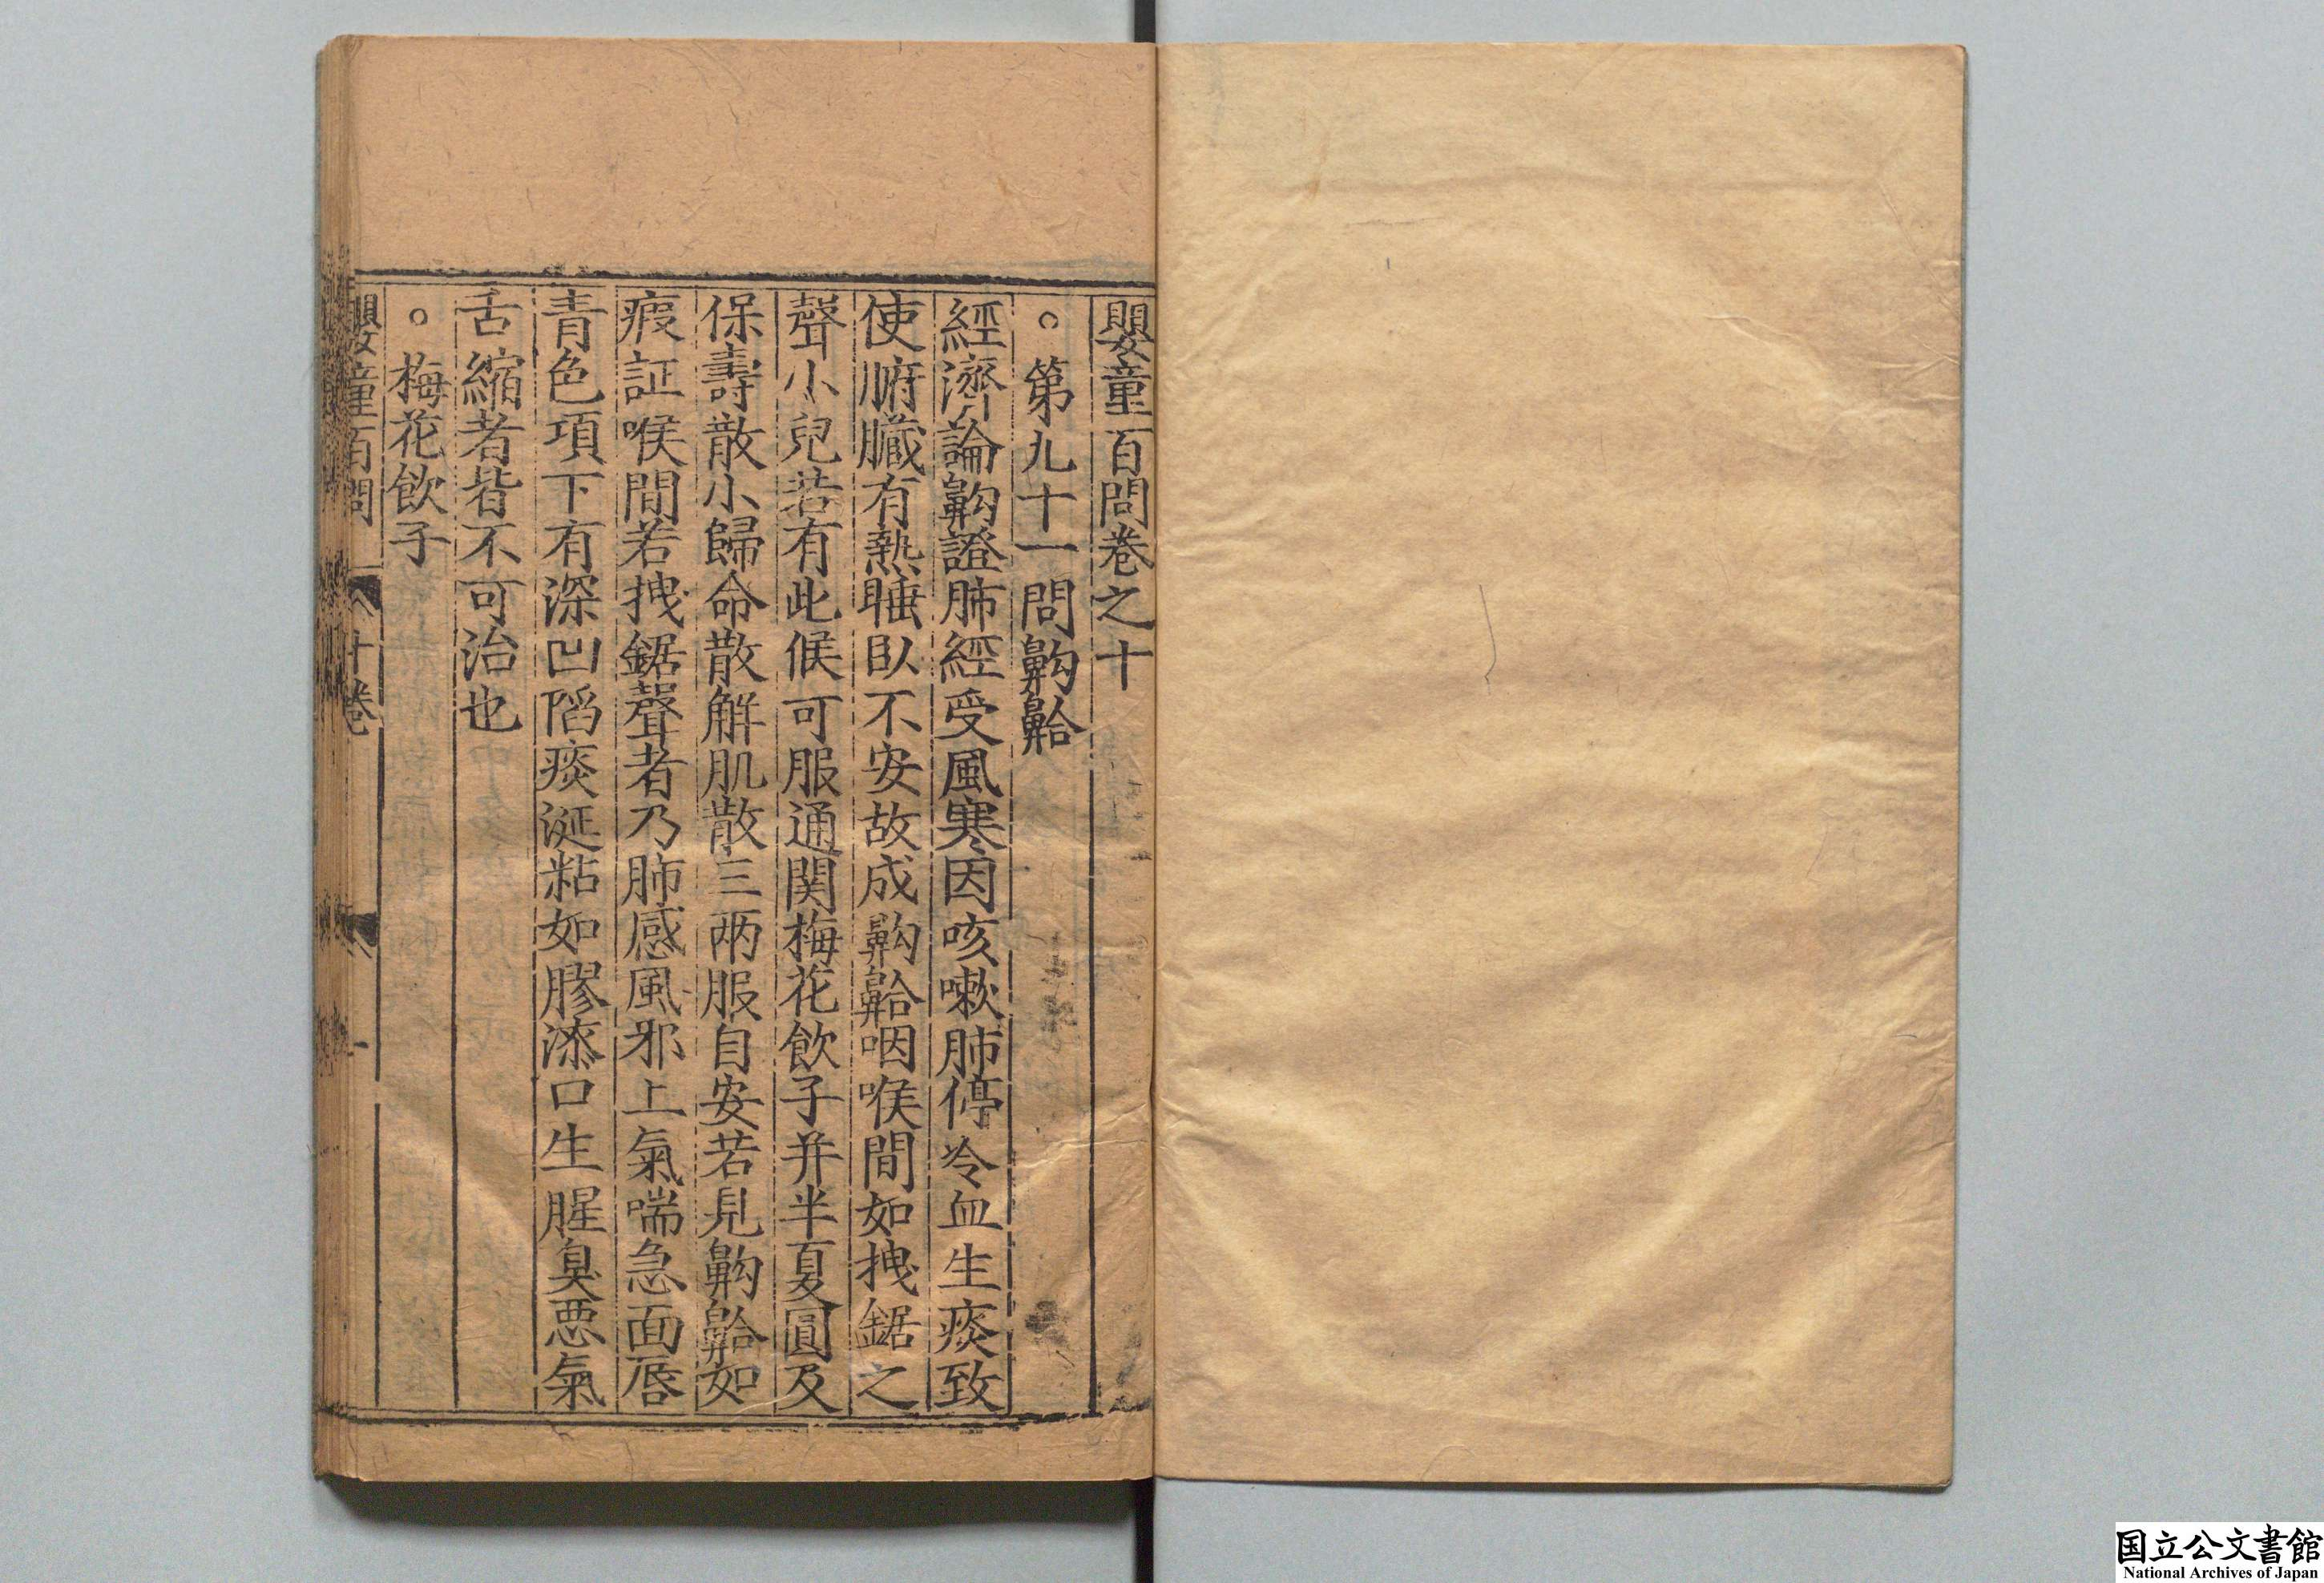 嬰童百問卷之十
○第九十一問齁𪖙
經濟論齁證肺經受風寒因咳嗽肺停冷血生痰致
使腑臟有熱睡臥不安故成齁𪖙咽喉間如拽鋸之
聲小兒若有此候可服通関梅花飲子并半夏圓及
保壽散小歸命散解肌散三兩服自安若見齁𪖙如
瘕証喉間若拽鋸聲者乃肺感風邪上氣喘急面唇
青色項下有深凹陷痰涎粘如膠漆口生腥臭悪氣
舌縮者皆不可治也
○梅花飲子
嬰童百問 十卷 一
国立公文書館
National Archives of Japan